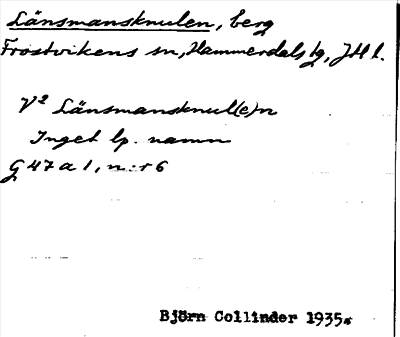 Länsmansknulen, berg
Frostvikens sn, Hammerdals tg, JH l.
V² Länsmansknul(e)n
Inget lp. namn
G 47 a 1, n:r 6
Björn Collinder 1935.